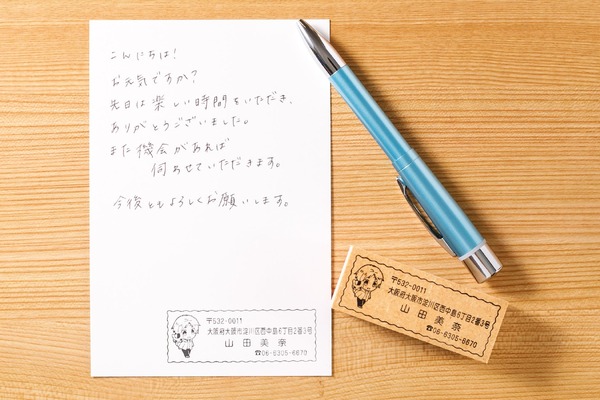 こんにちは!
お元気ですか?
先日は楽しい時間をいただき、
ありがとうございました。
また機会があれば
伺わせていただきます。
今後ともよろしくお願いします。
〒532-0011
大阪府大阪市淀川区西中島6丁目2番3号
山田美奈
☎06-6305-6670
〒532-0011
大阪府大阪市淀川区西中島6丁目2番3号
山田美奈
☎06-6305-6670